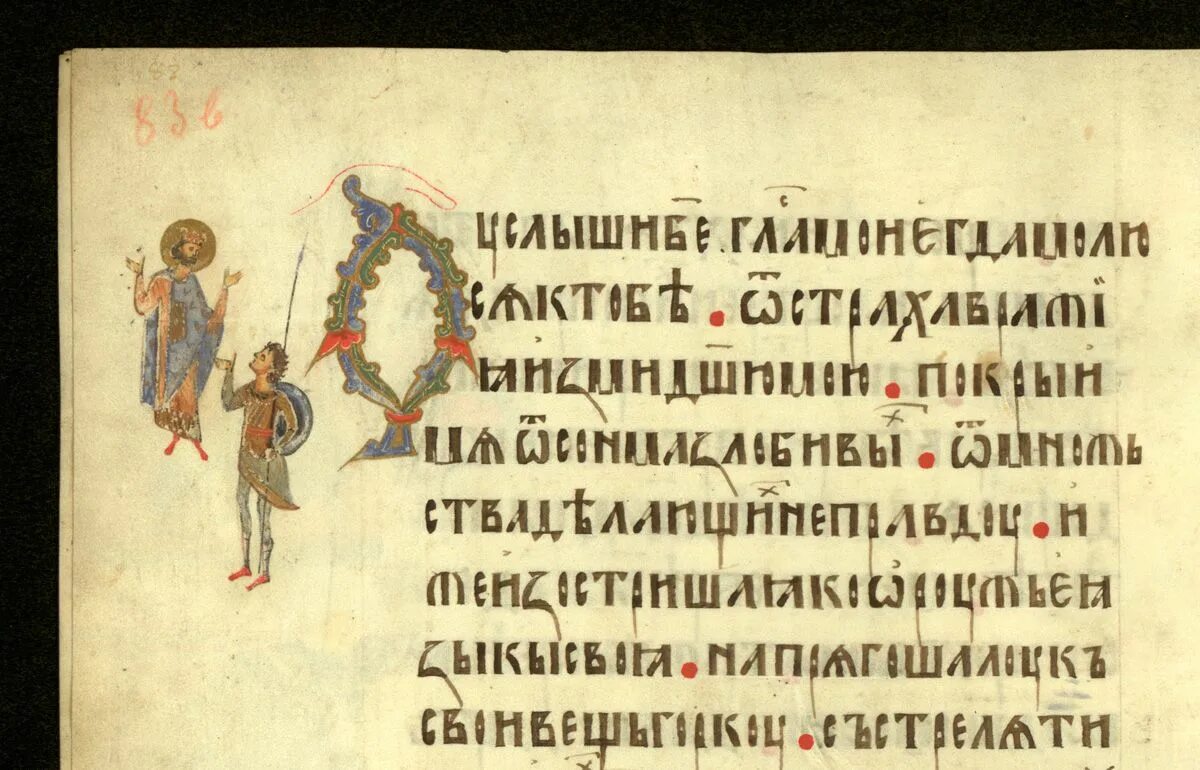 83 в
Оуслышиб҃е . глⷭ҇амоиегдамолю
сѧктобѣ · ѿстрахавражї
ꙗизмидш҃юмою · покрыи
мѧѿсонмазлобивыⷯ · ѿмножь
ствадѣлающиⷯнеправдоу · и
жеизостришаꙗкоѡроужьеꙗ
зыкысвоꙗ · напрѧгошалоукъ
своивещьгоркоу · състрелѧти